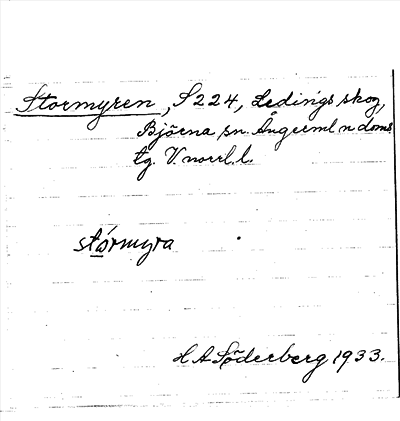 Stormyren, S224, Ledings skog,
Björna sn. Ångerml n doms
tg. V.norrl.l.
stórmyra
H A Söderberg 1933.